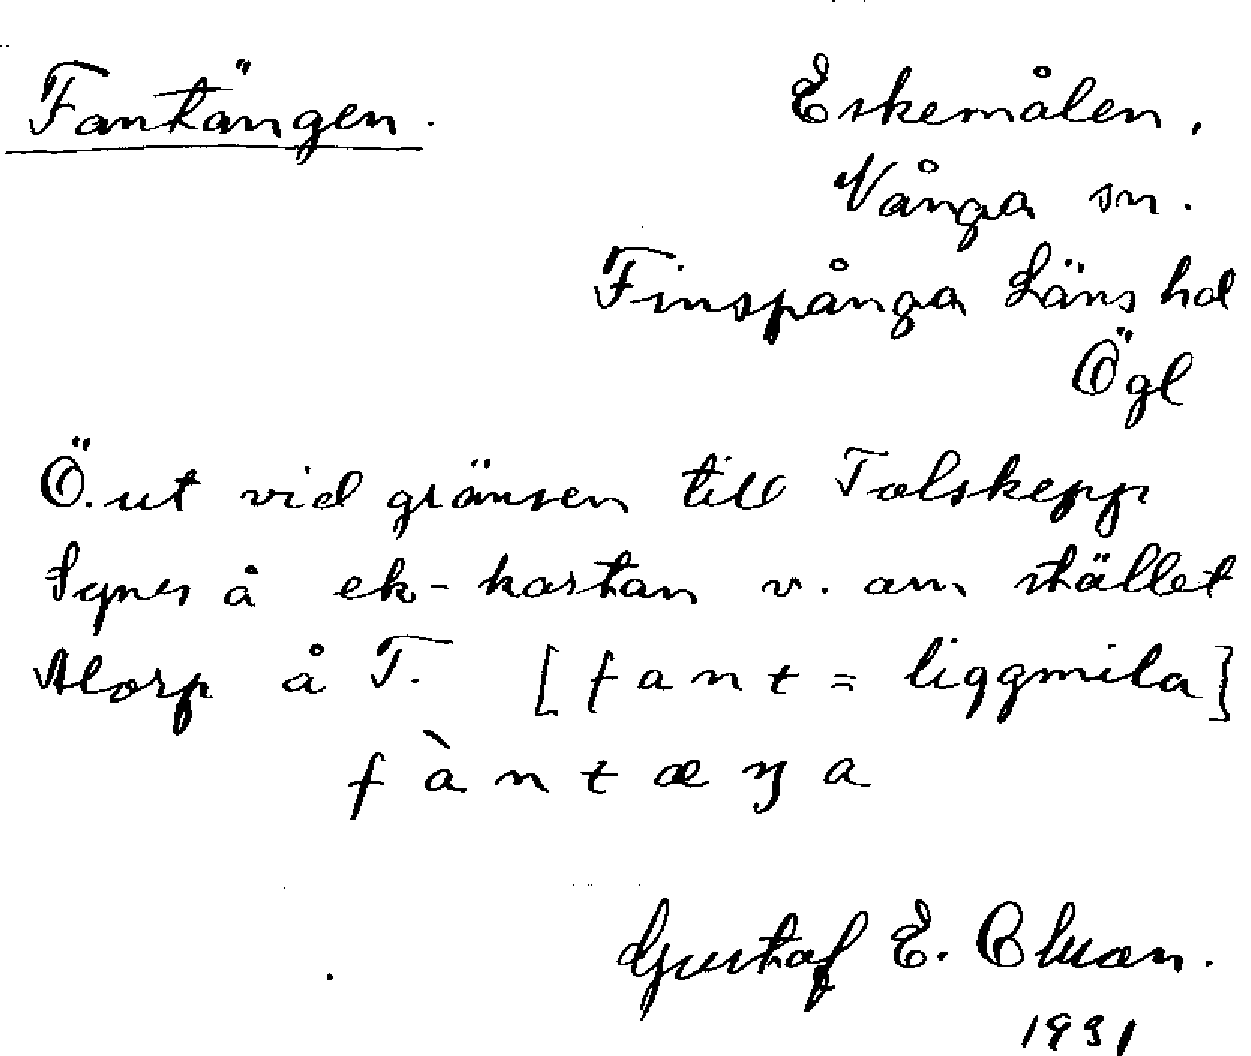 Fantängen.
Eskemålen,
Vånga sn.
Finspånga Läns hd
Ögl
Ö. ut vid gränsen till Tolskepp
Synes å ek-kartan v. om stället
Alorp å T. [fant = liggmila]
fàntæŋa
Gustaf E.
1931